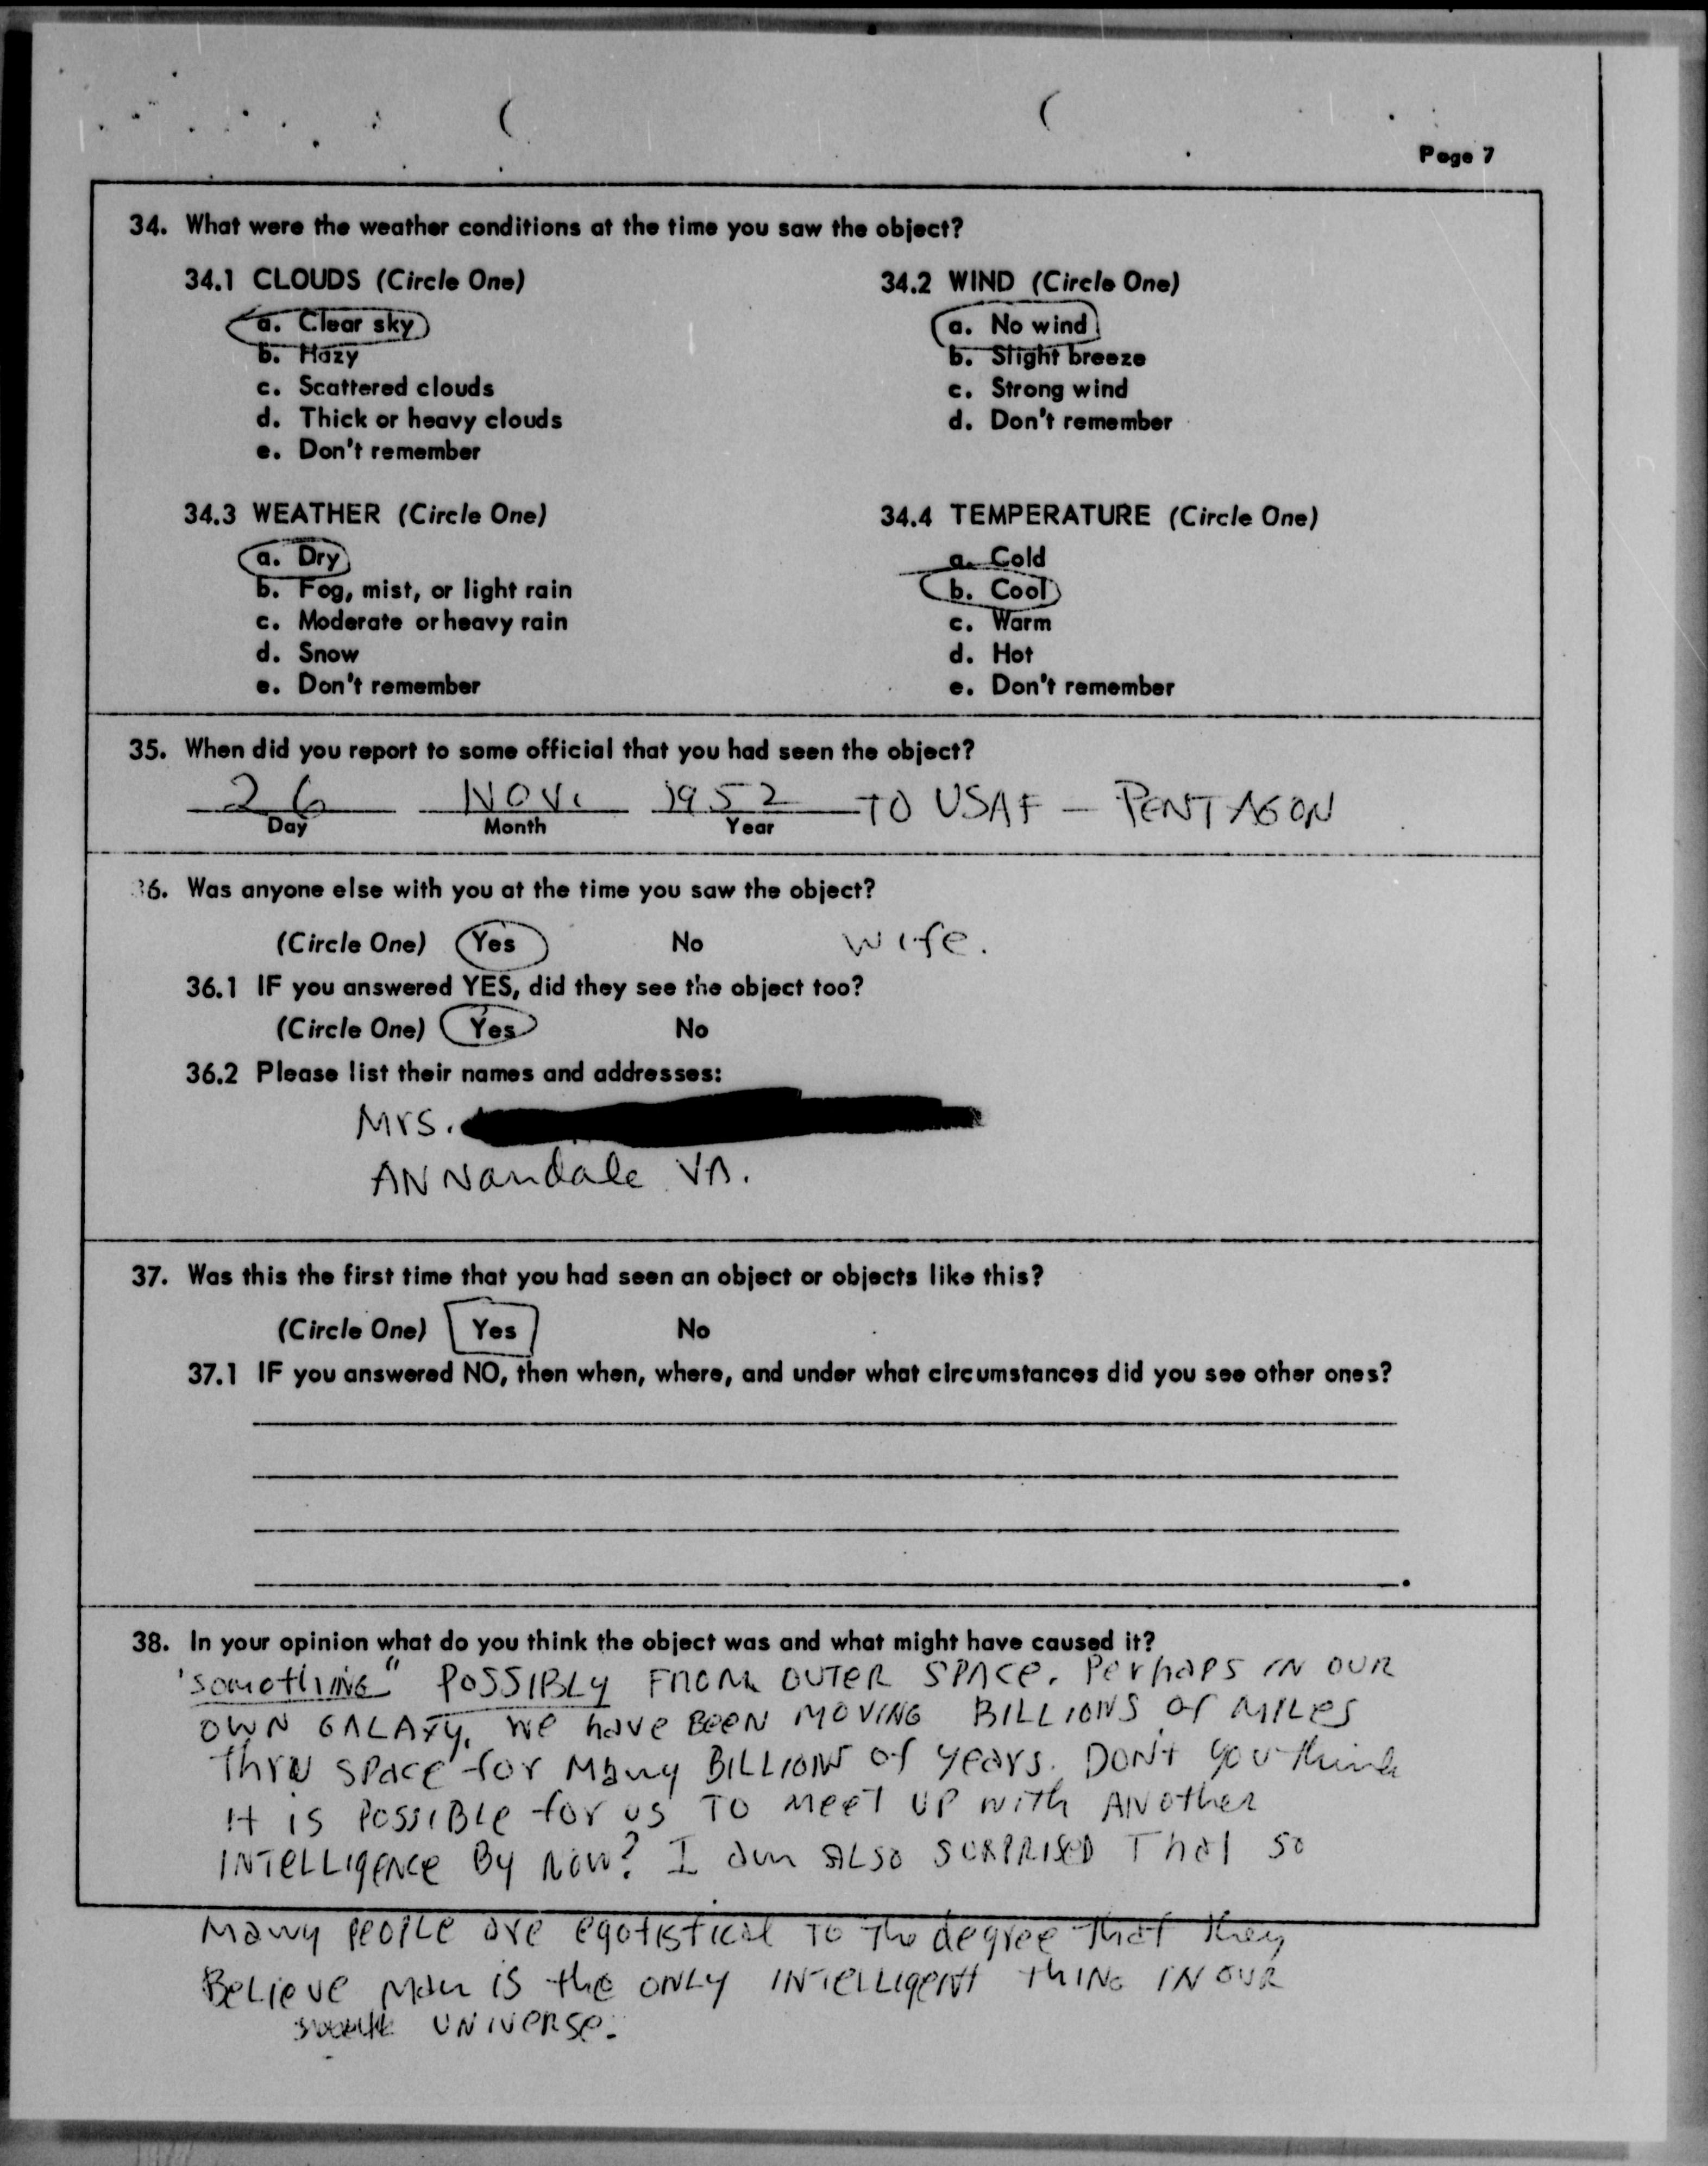 Page 7
34. What were the weather conditions at the time you saw the object?
34.1 CLOUDS (Circle One)
a. Clear sky
b. Hazy
c. Scattered clouds
d. Thick or heavy clouds
e. Don't remember
34.2 WIND (Circle One)
a. No wind
b. Slight breeze
c. Strong wind
d. Don't remember
34.3 WEATHER (Circle One)
a. Dry
b. Fog, mist, or light rain
c. Moderate or heavy rain
d. Snow
e. Don't remember
34.4 TEMPERATURE (Circle One)
a. Cold
b. Cool
c. Warm
d. Hot
e. Don't remember
35. When did you report to some official that you had seen the object?
26 NOV. 1952 TO USAF - PENTAGON
Day Month Year
36. Was anyone else with you at the time you saw the object?
(Circle One) Yes No wife.
36.1 IF you answered YES, did they see the object too?
(Circle One) Yes No
36.2 Please list their names and addresses:
Mrs.
ANNandale VA.
37. Was this the first time that you had seen an object or objects like this?
(Circle One) Yes No
37.1 IF you answered NO, then when, where, and under what circumstances did you see other ones?
38. In your opinion what do you think the object was and what might have caused it?
'something" POSSIBLY FROM OUTER SPACE. Perhaps IN OUR
OWN GALAXY. We have BEEN MOVING BILLIONS of MILES
thru space for Many BILLIONS of years. DON't you think
it is POSSIBLE for us TO MEET UP with ANother
INTELLIGENCE By NOW? I am ALSO SURPRISED That so
Many PEOPLE are egotistical TO The degree that they
Believe Man is the ONLY INTELLIGENT THING IN OUR
UNIVERSE.